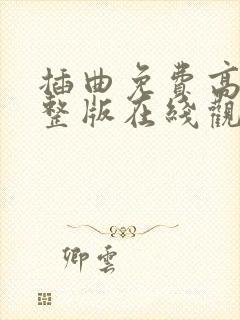 插曲免费高
整版在线觀
卿雲